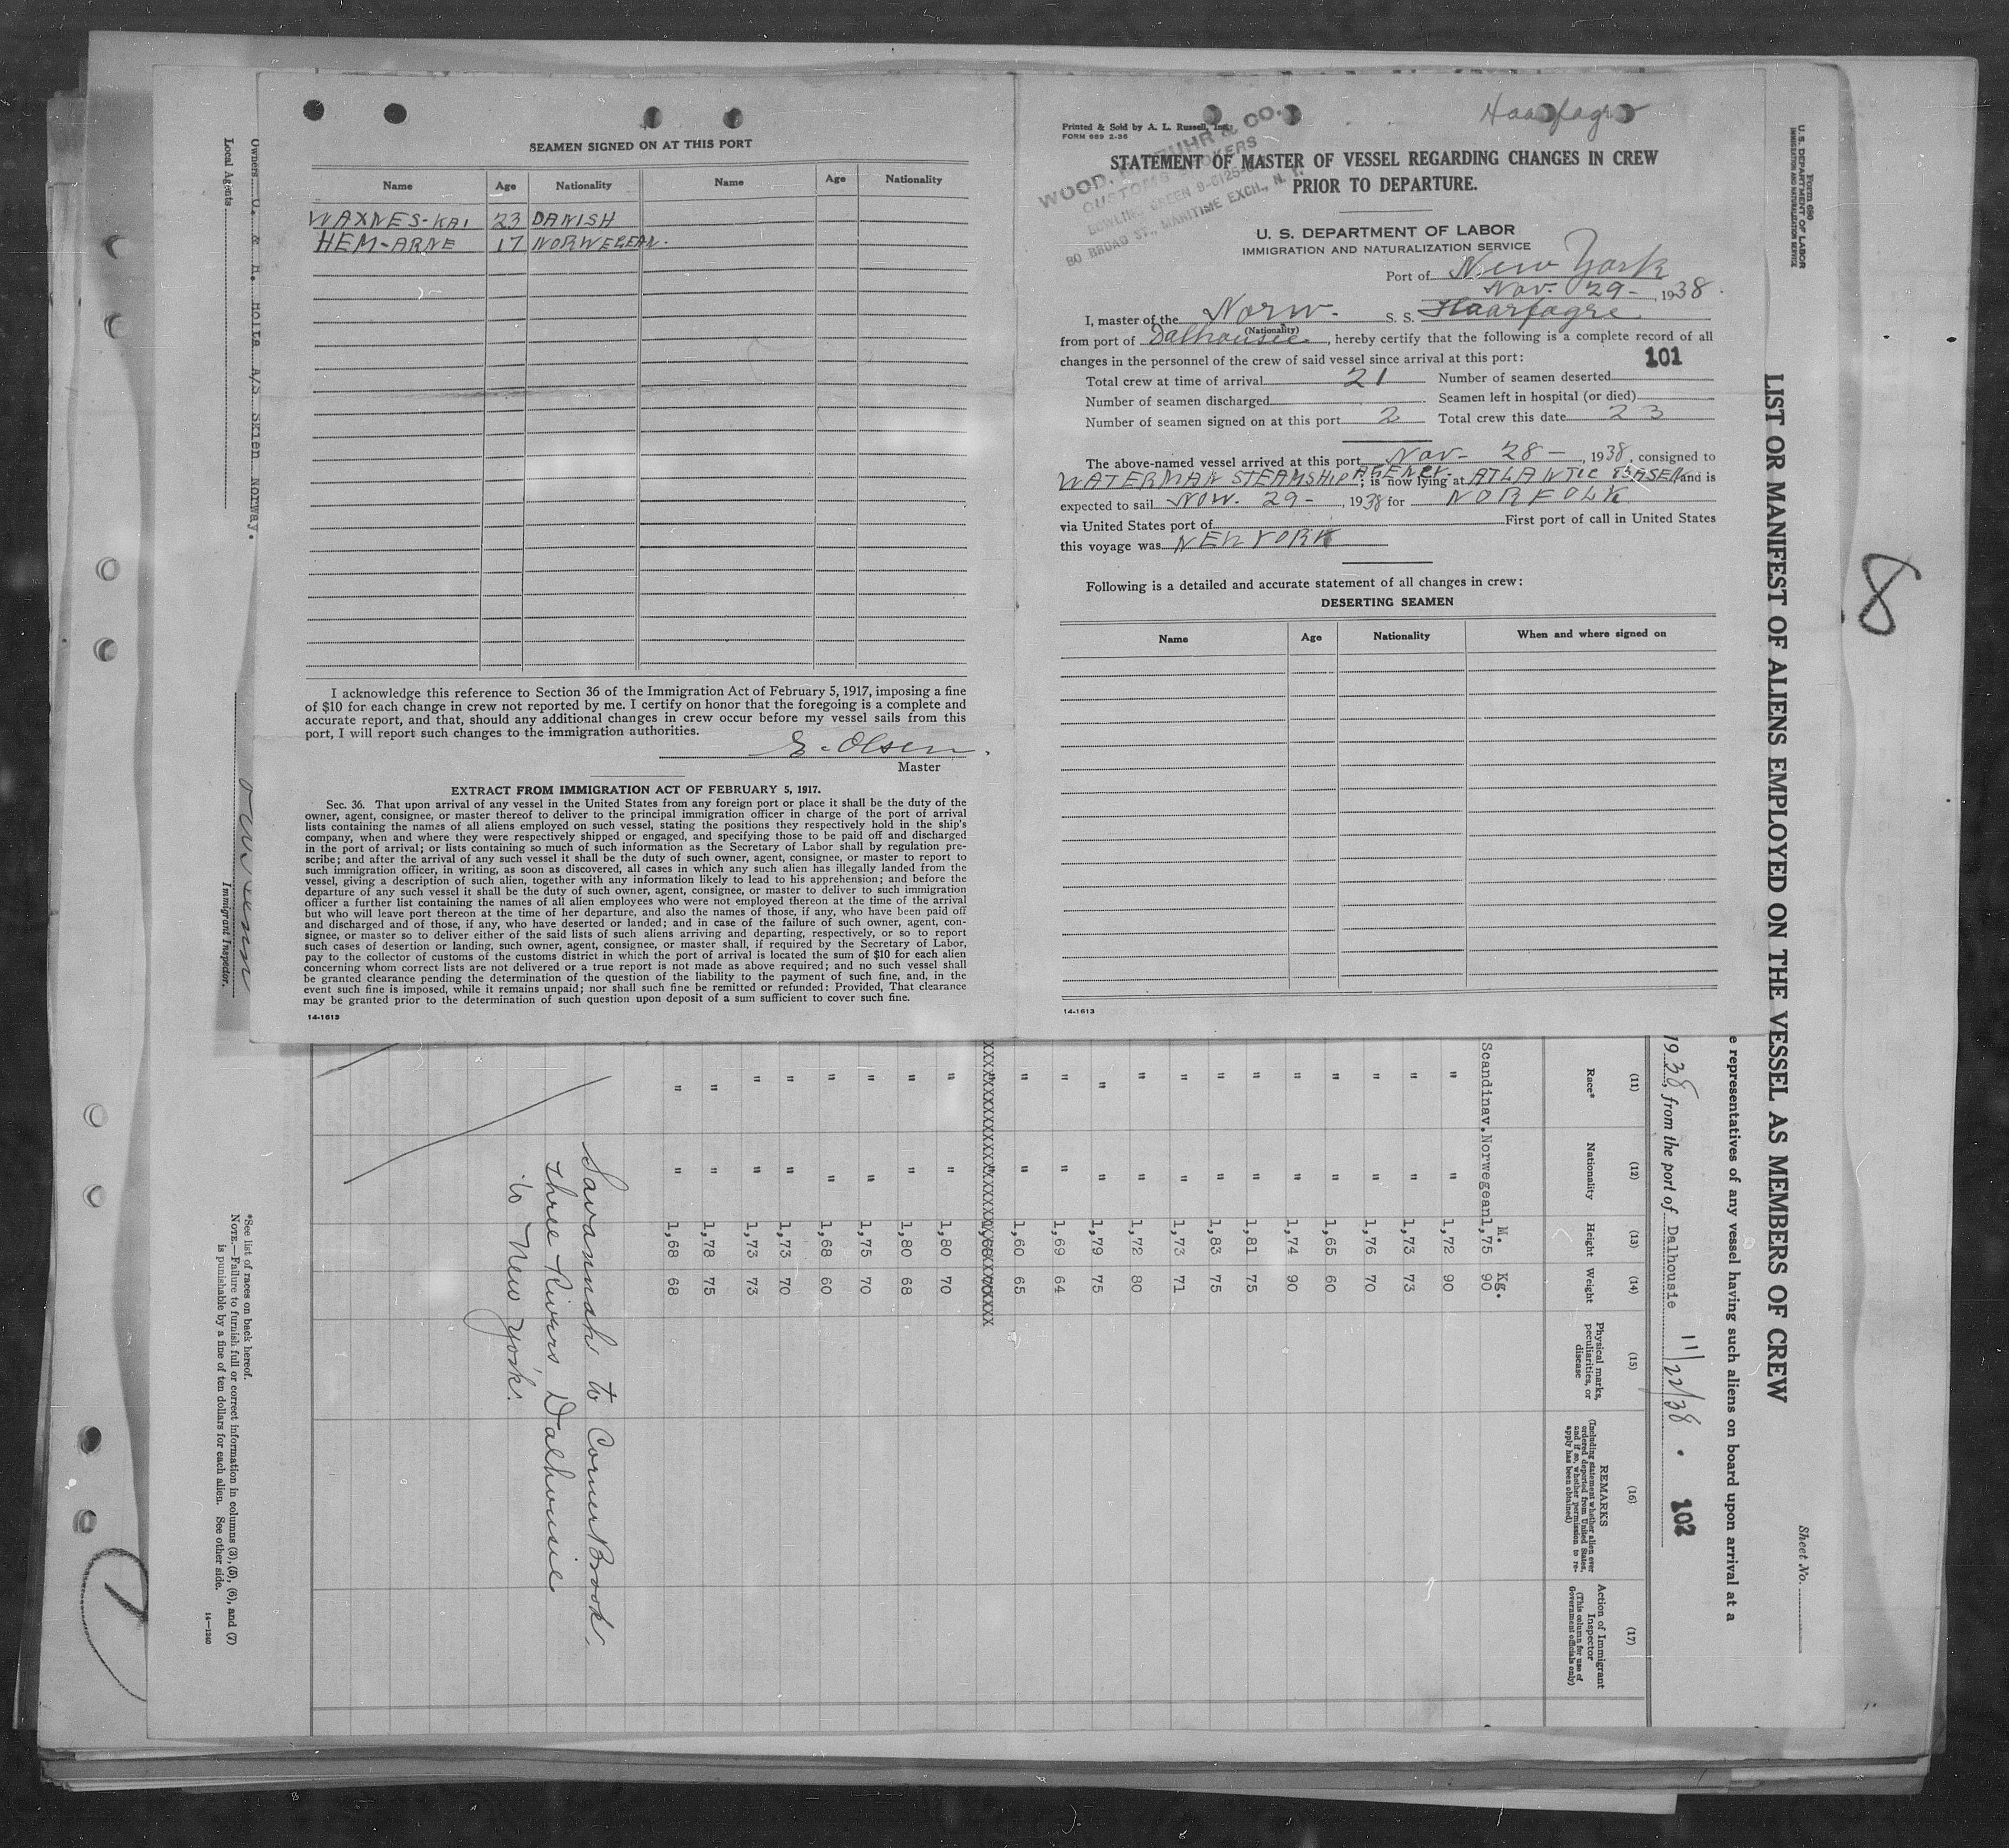 SEAMEN SIGNED ON AT THIS PORT
Name Age Nationality Name Age Nationality
WAXNES-KAI 23 DANISH
HEM-ARNE 17 NORWEGEAN.
I acknowledge this reference to Section 36 of the Immigration Act of February 5, 1917, imposing a fine
of $10 for each change in crew not reported by me. I certify on honor that the foregoing is a complete and
accurate report, and that, should any additional changes in crew occur before my vessel sails from this
port, I will report such changes to the immigration authorities.
E. Olsen.
Master
EXTRACT FROM IMMIGRATION ACT OF FEBRUARY 5, 1917.
Sec. 36. That upon arrival of any vessel in the United States from any foreign port or place it shall be the duty of the
owner, agent, consignee, or master thereof to deliver to the principal immigration officer in charge of the port of arrival
lists containing the names of all aliens employed on such vessel, stating the positions they respectively hold in the ship's
company, when and where they were respectively shipped or engaged, and specifying those to be paid off and discharged
in the port of arrival; or lists containing so much of such information as the Secretary of Labor shall by regulation pre-
scribe; and after the arrival of any such vessel it shall be the duty of such owner, agent, consignee, or master to report to
such immigration officer, in writing, as soon as discovered, all cases in which any such alien has illegally landed from the
vessel, giving a description of such alien, together with any information likely to lead to his apprehension; and before the
departure of any such vessel it shall be the duty of such owner, agent, consignee, or master to deliver to such immigration
officer a further list containing the names of all alien employees who were not employed thereon at the time of the arrival
but who will leave port thereon at the time of her departure, and also the names of those, if any, who have been paid off
and discharged and of those, if any, who have deserted or landed; and in case of the failure of such owner, agent, con-
signee, or master so to deliver either of the said lists of such aliens arriving and departing, respectively, or so to report
such cases of desertion or landing, such owner, agent, consignee, or master shall, if required by the Secretary of Labor,
pay to the collector of customs of the customs district in which the port of arrival is located the sum of $10 for each alien
concerning whom correct lists are not delivered or a true report is not made as above required; and no such vessel shall
be granted clearance pending the determination of the question of the liability to the payment of such fine, and, in the
event such fine is imposed, while it remains unpaid; nor shall such fine be remitted or refunded: Provided, That clearance
may be granted prior to the determination of such question upon deposit of a sum sufficient to cover such fine.
14-1613
Haarfagre
Printed & Sold by A. L. Russell, Inc.
FORM 689 2-36
CUSTOMS BROKERS
BOWLING GREEN 9-6125-
80 BROAD ST., MARITIME EXCH., N. Y.
STATEMENT OF MASTER OF VESSEL REGARDING CHANGES IN CREW
PRIOR TO DEPARTURE.
U. S. DEPARTMENT OF LABOR
IMMIGRATION AND NATURALIZATION SERVICE
Port of New York
Nov. 29-, 1938.
I, master of the Norw. S. S. Haarfagre
(Nationality)
from port of Dalhousie, hereby certify that the following is a complete record of all
changes in the personnel of the crew of said vessel since arrival at this port:
101
Total crew at time of arrival 21 Number of seamen deserted
Number of seamen discharged Seamen left in hospital (or died)
Number of seamen signed on at this port 2 Total crew this date 23
The above-named vessel arrived at this port Nov- 28-, 1938, consigned to
WATERMAN STEAMSHIP AGENCY; is now lying at ATLANTIC BASEN and is
expected to sail NOV. 29-, 1938 for NORFOLK
via United States port of First port of call in United States
this voyage was NEW YORK
Following is a detailed and accurate statement of all changes in crew:
DESERTING SEAMEN
Name Age Nationality When and where signed on
14-1613
8
Form 680
U. S. DEPARTMENT OF LABOR
IMMIGRATION AND NATURALIZATION SERVICE
Sheet No.
LIST OR MANIFEST OF ALIENS EMPLOYED ON THE VESSEL AS MEMBERS OF CREW
e representatives of any vessel having such aliens on board upon arrival at a
1938, from the port of Dalhousie 11/22/38 . 102
(11) (12) (13) (14) (15) (16) (17)
Race* Nationality Height Weight Physical marks, peculiarities, or disease
REMARKS
(Including statement whether alien ever ordered deported from United States, and if so, whether permission to reapply has been obtained)
Action of Immigrant Inspector
(This column for use of Government officials only)
M. Kg.
Scandinav. Norwegean 1,75 90
" " 1,72 90
" " 1,73 73
" " 1,76 70
" " 1,65 60
" " 1,74 90
" " 1,81 75
" " 1,83 75
" " 1,73 71
" " 1,72 80
" " 1,79 75
" " 1,69 64
" " 1,60 65
" " 1,80 70
" " 1,80 68
" " 1,75 70
" " 1,68 60
" " 1,73 70
" " 1,73 73
" " 1,78 75
" " 1,68 68
Savannah to Corner Brook,
Three Rivers Dalhousie
to New York.
Owners Holta A/S Skien Norway.
Local Agents
Immigrant Inspector.
*See list of races on back hereof.
NOTE.—Failure to furnish full or correct information in columns (3), (5), (6), and (7)
is punishable by a fine of ten dollars for each alien. See other side.
14-1240